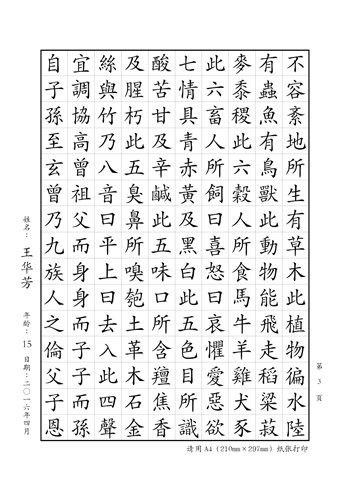 不容紊地所生有草木此植物徧水陸
有蟲魚有鳥獸此動物能飛走稻粱菽
麥黍稷此六穀人所食馬牛羊雞犬豕
此六畜人所飼曰喜怒曰哀懼愛惡欲
七情具青赤黃及黑白此五色目所識
酸苦甘及辛鹹此五味口所含羶焦香
及腥朽此五臭鼻所嗅匏土革木石金
絲與竹乃八音曰平上曰去入此四聲
宜調協高曾祖父而身身而子子而孫
自子孫至玄曾乃九族人之倫父子恩
姓名：王华芳 年龄：15 日期：二〇一六年四月
第 3 页
请用A4（210mm×297mm）纸张打印